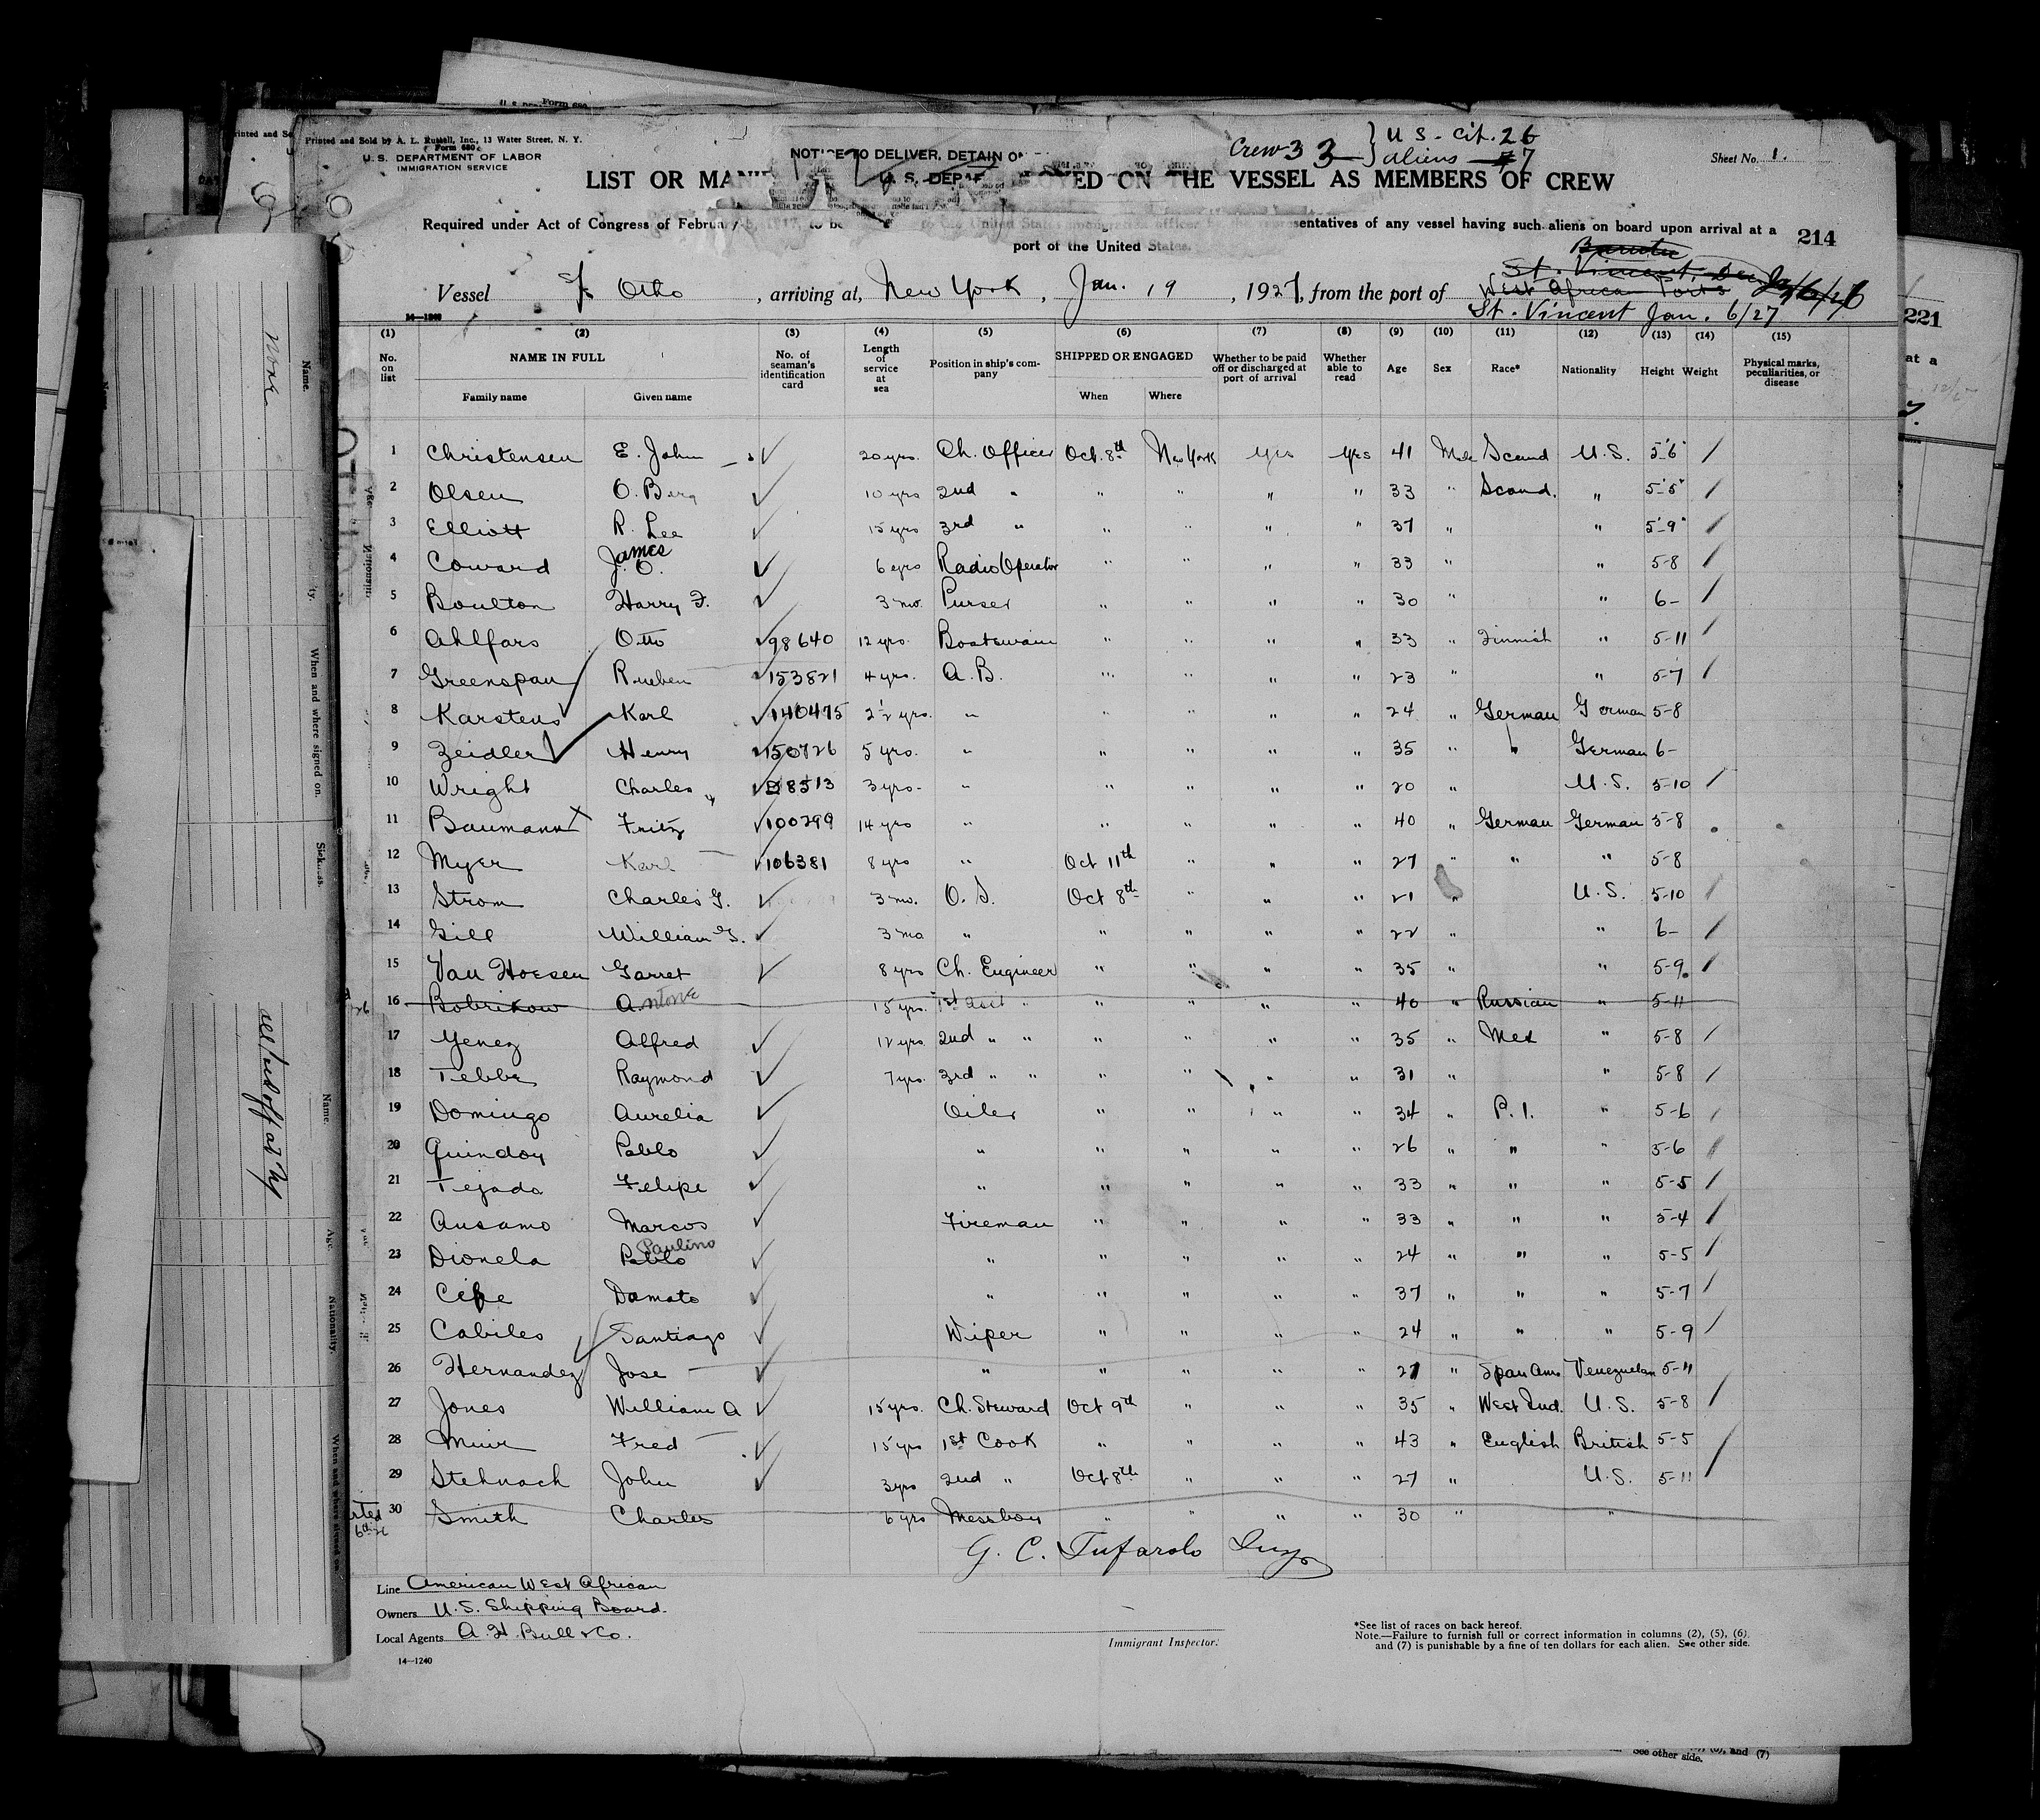 Printed and Sold by A. L. Russell, Inc., 13 Water Street, N. Y.
Form 680
U. S. DEPARTMENT OF LABOR
IMMIGRATION SERVICE
NOTICE TO DELIVER, DETAIN
U. S. DEPAR
Crew 33 } U S - cit. 26
aliens 7
Sheet No. 1.
LIST OR MANI OYED ON THE VESSEL AS MEMBERS OF CREW
Required under Act of Congress of February 5, 1917, to be to the United States immigration officer by the representatives of any vessel having such aliens on board upon arrival at a
port of the United States.
214
St. Vincent, Dec
Vessel Otho , arriving at, New York , Jan. 19 , 1927, from the port of West African Ports
St. Vincent Jan. 6/27
14—1240
(1) (2) (3) (4) (5) (6) (7) (8) (9) (10) (11) (12) (13) (14) (15)
No. on list NAME IN FULL Family name Given name No. of seaman's identification card Length of service at sea Position in ship's company SHIPPED OR ENGAGED When Where Whether to be paid off or discharged at port of arrival Whether able to read Age Sex Race* Nationality Height Weight Physical marks, peculiarities, or disease
1 Christensen E. John 20 yrs. Ch. Officer Oct. 8th New York Yes Yes 41 Male Scand U.S. 5'6"
2 Olsen O. Berg 10 yrs 2nd " " " " " 33 " Scand. " 5'5"
3 Elliott R. Lee 15 yrs 3rd " " " " " 37 " " 5'9"
4 Coward James J. O. 6 yrs Radio Operator " " " " 33 " " 5-8
5 Boulton Harry F. 3 mo. Purser " " " " 30 " " 6-
6 Ahlfors Otto 98640 12 yrs. Boatswain " " " " 33 " Finnish " 5-11
7 Greenspan Rueben 153821 4 yrs. A.B. " " " " 23 " " 5-7
8 Karstens Karl 140475 2½ yrs. " " " " " 24 " German German 5-8
9 Zeidler Henry 150726 5 yrs. " " " " " 35 " " German 6-
10 Wright Charles 8513 3 yrs. " " " " " 20 " U.S. 5-10
11 Baumann Fritz 100299 14 yrs " " " " " 40 " German German 5-8
12 Myer Karl 106381 8 yrs " Oct 11th " " " 27 " " " 5-8
13 Strom Charles G. 3 mo. O.S. Oct 8th " " " 21 " U.S. 5-10
14 Gill William G. 3 mo " " " " " 22 " " 6-
15 Van Hoesen Garret 8 yrs Ch. Engineer " " " " 35 " " 5-9
16 Bobrikow Antone 15 yrs. 1st Asst " " " " " 40 " Russian " 5-11
17 Yenez Alfred 12 yrs. 2nd " " " " " " 35 " Mex " 5-8
18 Tebbe Raymond 7 yrs. 3rd " " " " " " 31 " " 5-8
19 Domingo Aurelia Oiler " " " " 34 " P.I. " 5-6
20 Quindoy Pablo " " " " " 26 " " " 5-6
21 Tejada Felipe " " " " " 33 " " " 5-5
22 Ausamo Marcos Fireman " " " " 33 " " " 5-4
23 Dionela Pablo Paulino " " " " " 24 " " " 5-5
24 Cipe Damato " " " " " 37 " " " 5-7
25 Cabiles Santiago Wiper " " " " 24 " " " 5-9
26 Hernandez Jose " " " " " 27 " Span Am Venezuelan 5-11
27 Jones William A 15 yrs. Ch. Steward Oct 9th " " " 35 " West Ind. U.S. 5-8
28 Muir Fred 15 yrs 1st Cook " " " " 43 " English British 5-5
29 Stehnach John 3 yrs 2nd " Oct 8th " " " 27 " U.S. 5-11
30 Smith Charles 6 yrs Messboy " " " " 30 " "
G. C. Tufarolo
Line American West African
Owners U.S. Shipping Board.
Local Agents A. H. Bull & Co.
14—1240
Immigrant Inspector.
*See list of races on back hereof.
Note.—Failure to furnish full or correct information in columns (2), (5), (6), and (7) is punishable by a fine of ten dollars for each alien. See other side.
221
at a
none
Name.
When and where signed on.
Sickness.
Name.
Age.
Nationality.
When and where signed on.
See other side.